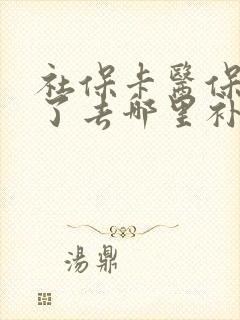 社保卡醫保
了去哪里补
湯鼎